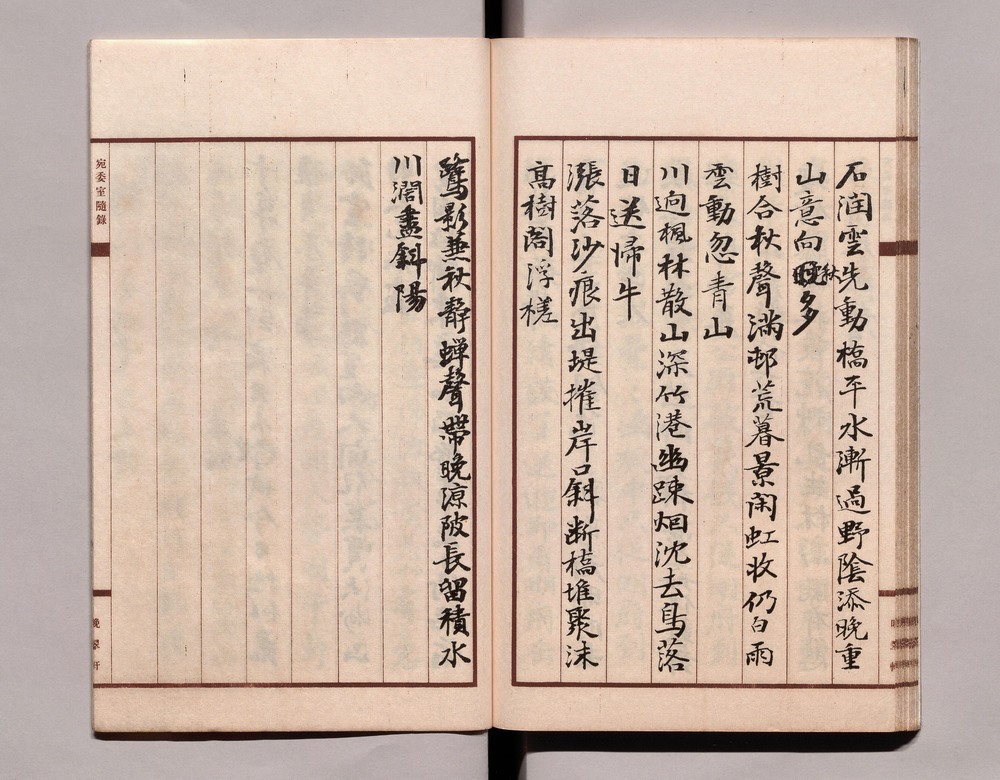 石潤雲先動橋平水漸過野陰添晚重
山意向秋多
樹合秋聲滿邨荒暮景閑虹收仍白雨
雲動忽青山
川迥楓林散山深竹港幽踈烟沈去鳥落
日送歸牛
漲落沙痕出堤摧岸口斜斷橋堆聚沫
高樹閣浮槎
鷺影兼秋靜蟬聲帶晚涼陂長留積水
川濶盡斜陽
宛委室隨錄
晚翠軒